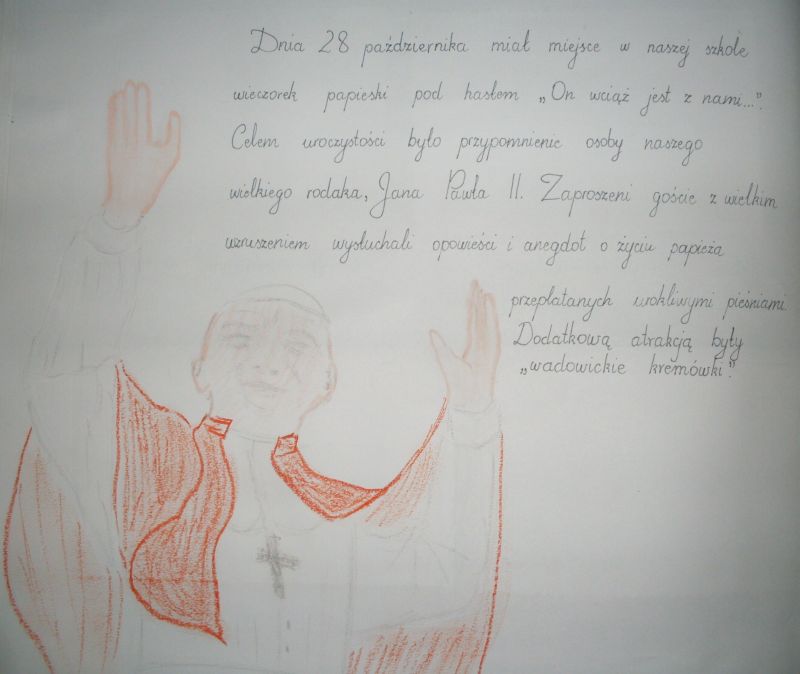 Dnia 28 października miał miejsce w naszej szkole
wieczorek papieski pod hasłem „On wciąż jest z nami...".
Celem uroczystości było przypomnienie osoby naszego
wielkiego rodaka, Jana Pawła II. Zaproszeni goście z wielkim
wzruszeniem wysłuchali opowieści i anegdot o życiu papieża
przeplatanych urokliwymi pieśniami.
Dodatkową atrakcją były
„wadowickie kremówki".